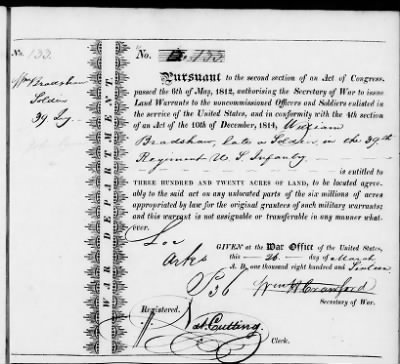 No. 133.
Wm Bradshaw
Soldier
39 Inf.
WAR DEPARTMENT.
No. 133.
Pursuant to the second section of an Act of Congress,
passed the 6th of May, 1812, authorising the Secretary of War to issue
Land Warrants to the noncommissioned Officers and Soldiers enlisted in
the service of the United States, and in conformity with the 4th section
of an Act of the 10th of December, 1814, William
Bradshaw, late a Soldier, in the 39th
Regiment U. S. Infantry
is entitled to
THREE HUNDRED AND TWENTY ACRES OF LAND, to be located agree-
ably to the said act on any unlocated parts of the six millions of acres
appropriated by law for the original grantees of such military warrants; and
this warrant is not assignable or transferable in any manner what-
ever.
Loc
Arks
GIVEN at the War Office of the United States,
this 26 day of March
A. D. one thousand eight hundred and Sixteen
Wm H Crawford
Secretary of War.
Registered.
Cutting
Clerk.